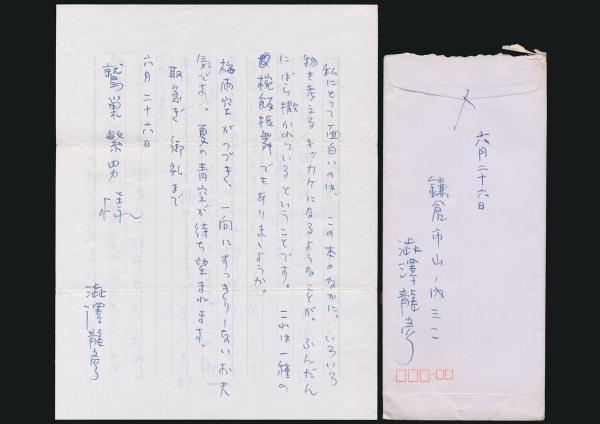 私にとって面白いのは、この本のなかに、いろいろ
物を考えるキッカケになるようなことが、ふんだん
にばら撒かれているということです。これは一種の
椀飯振舞でもありましょうか。
梅雨空がつづき、一向にすっきりしないお天
気です。夏の青空が待ち望まれます。
取急ぎ御礼まで
六月二十六日
澁澤龍彥
鷲巣繁男様
六月二十六日
鎌倉市山ノ内三一二
澁澤龍彥